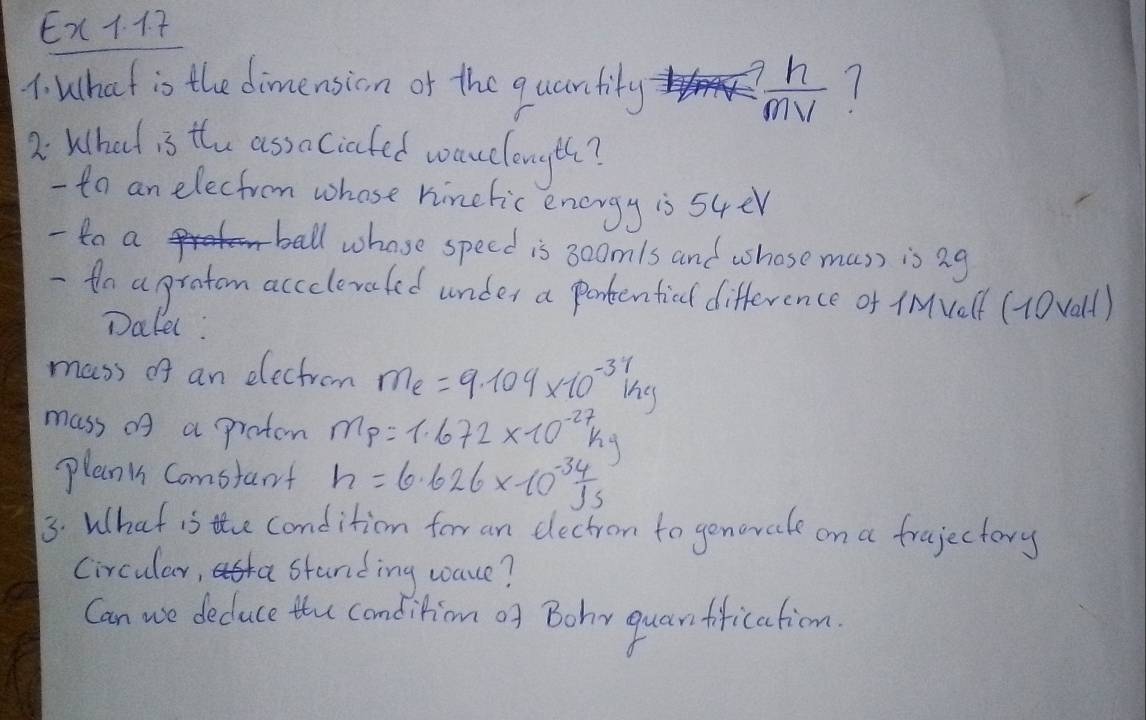 Ex 1.1.7
1. What is the dimension of the quantity h/mv ?
2. What is the associated wavelength?
- to an electron whose kinetic energy is 54 eV
- to a ball whose speed is 300m/s and whose mass is 2g
- to a proton accelerated under a potential difference of 1MVolt (10 volt)
Data :
mass of an electron me = 9.109 x 10^-31 kg
mass of a proton mp = 1.672 x 10^-27 kg
plank constant h = 6.626 x 10^-34 Js
3. What is the condition for an electron to generate on a trajectory
circular, a standing wave?
Can we deduce the condition of Bohr quantification.